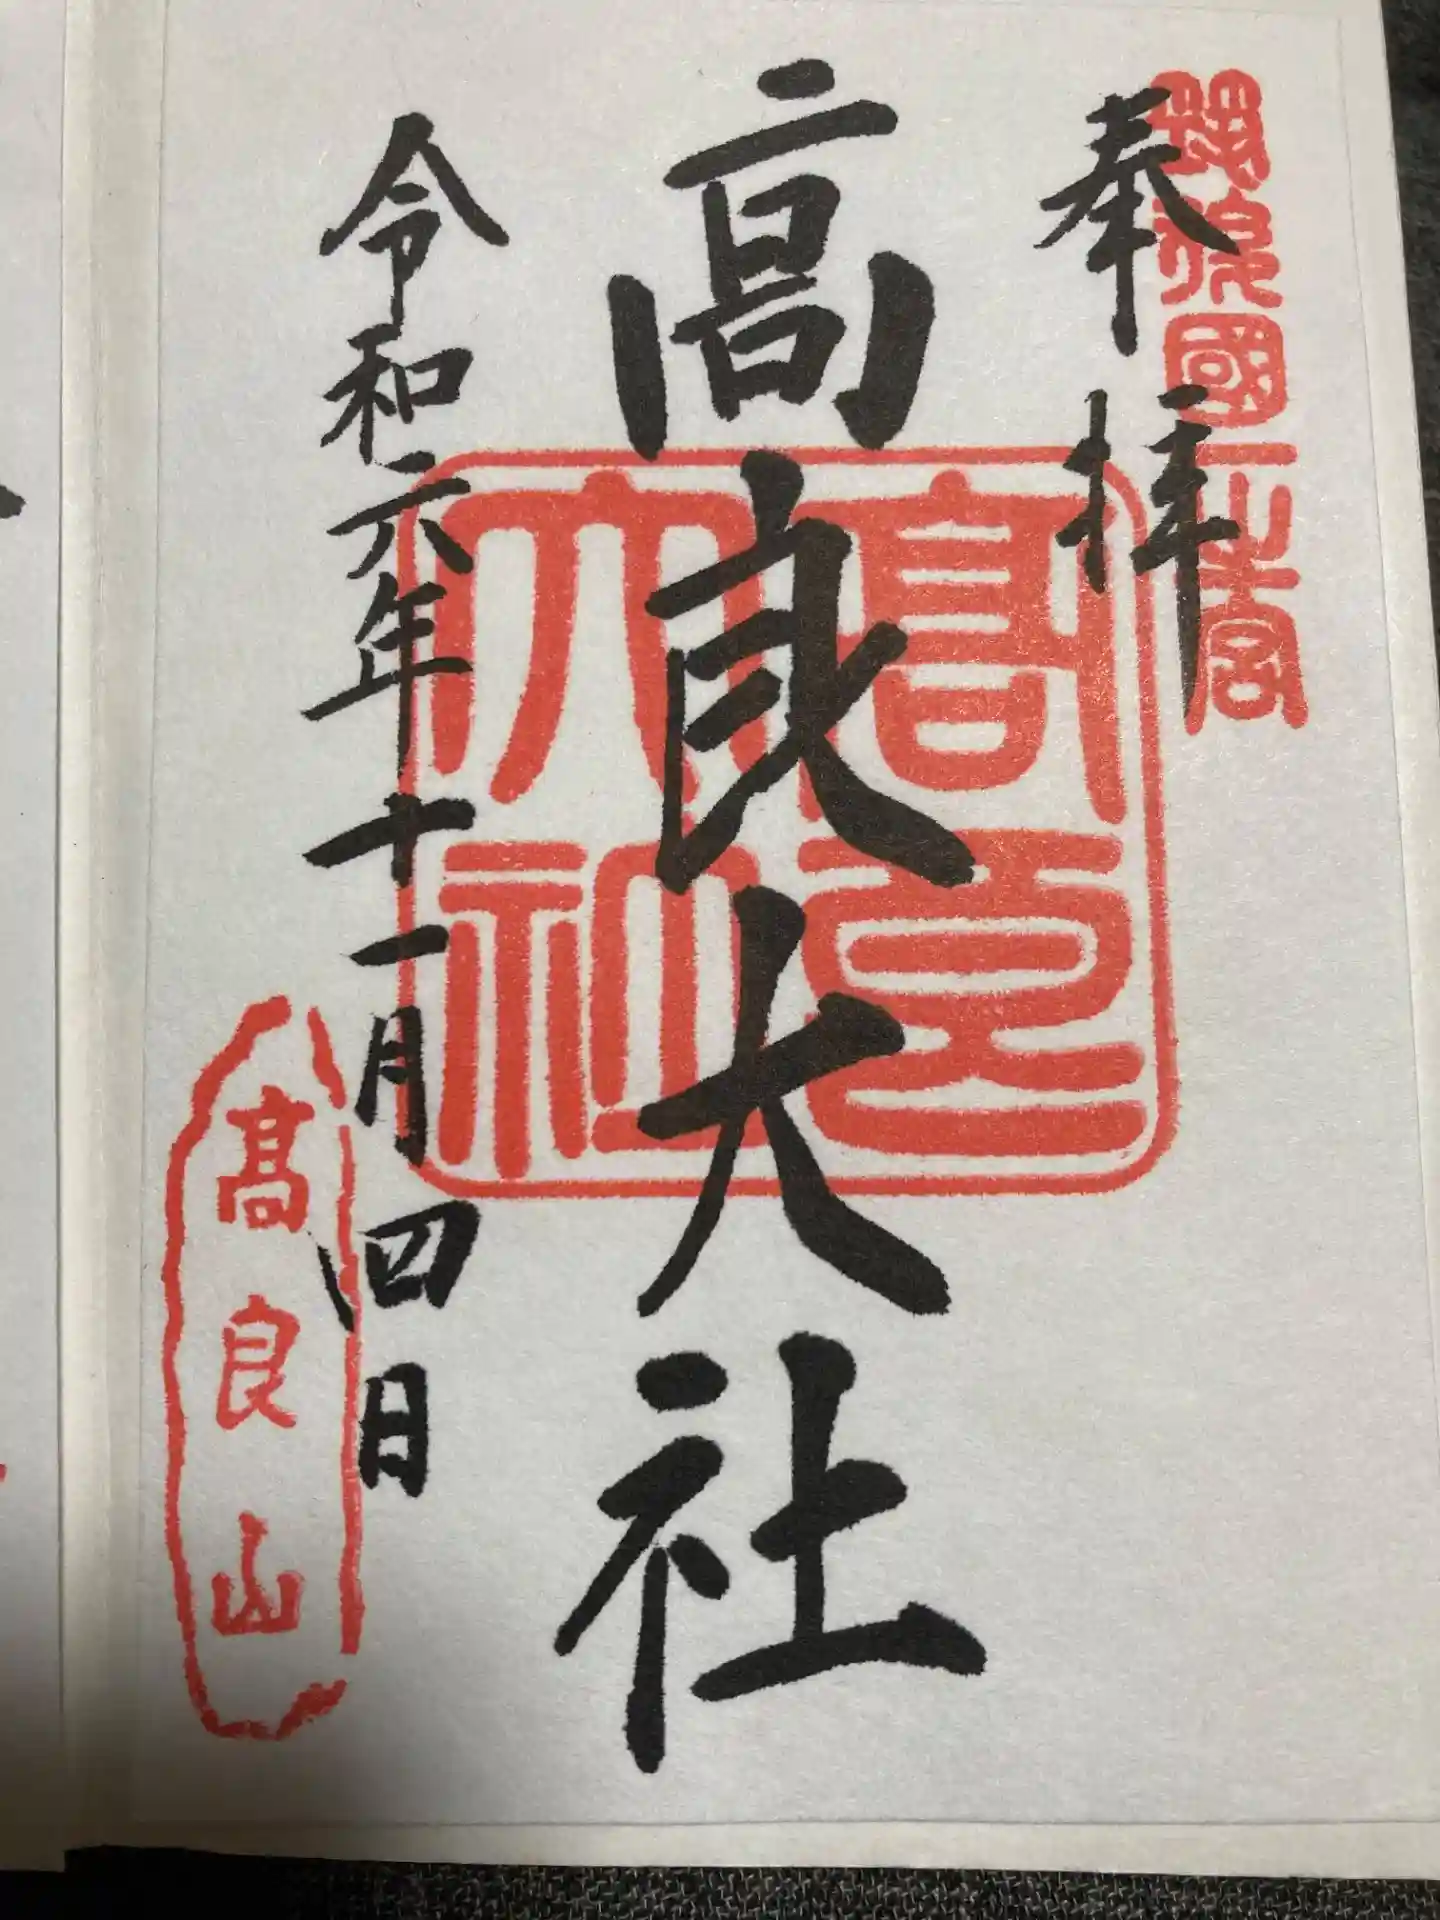 筑後國一之宮
奉拝
高良大社
高良大社
令和六年十一月四日
髙良山